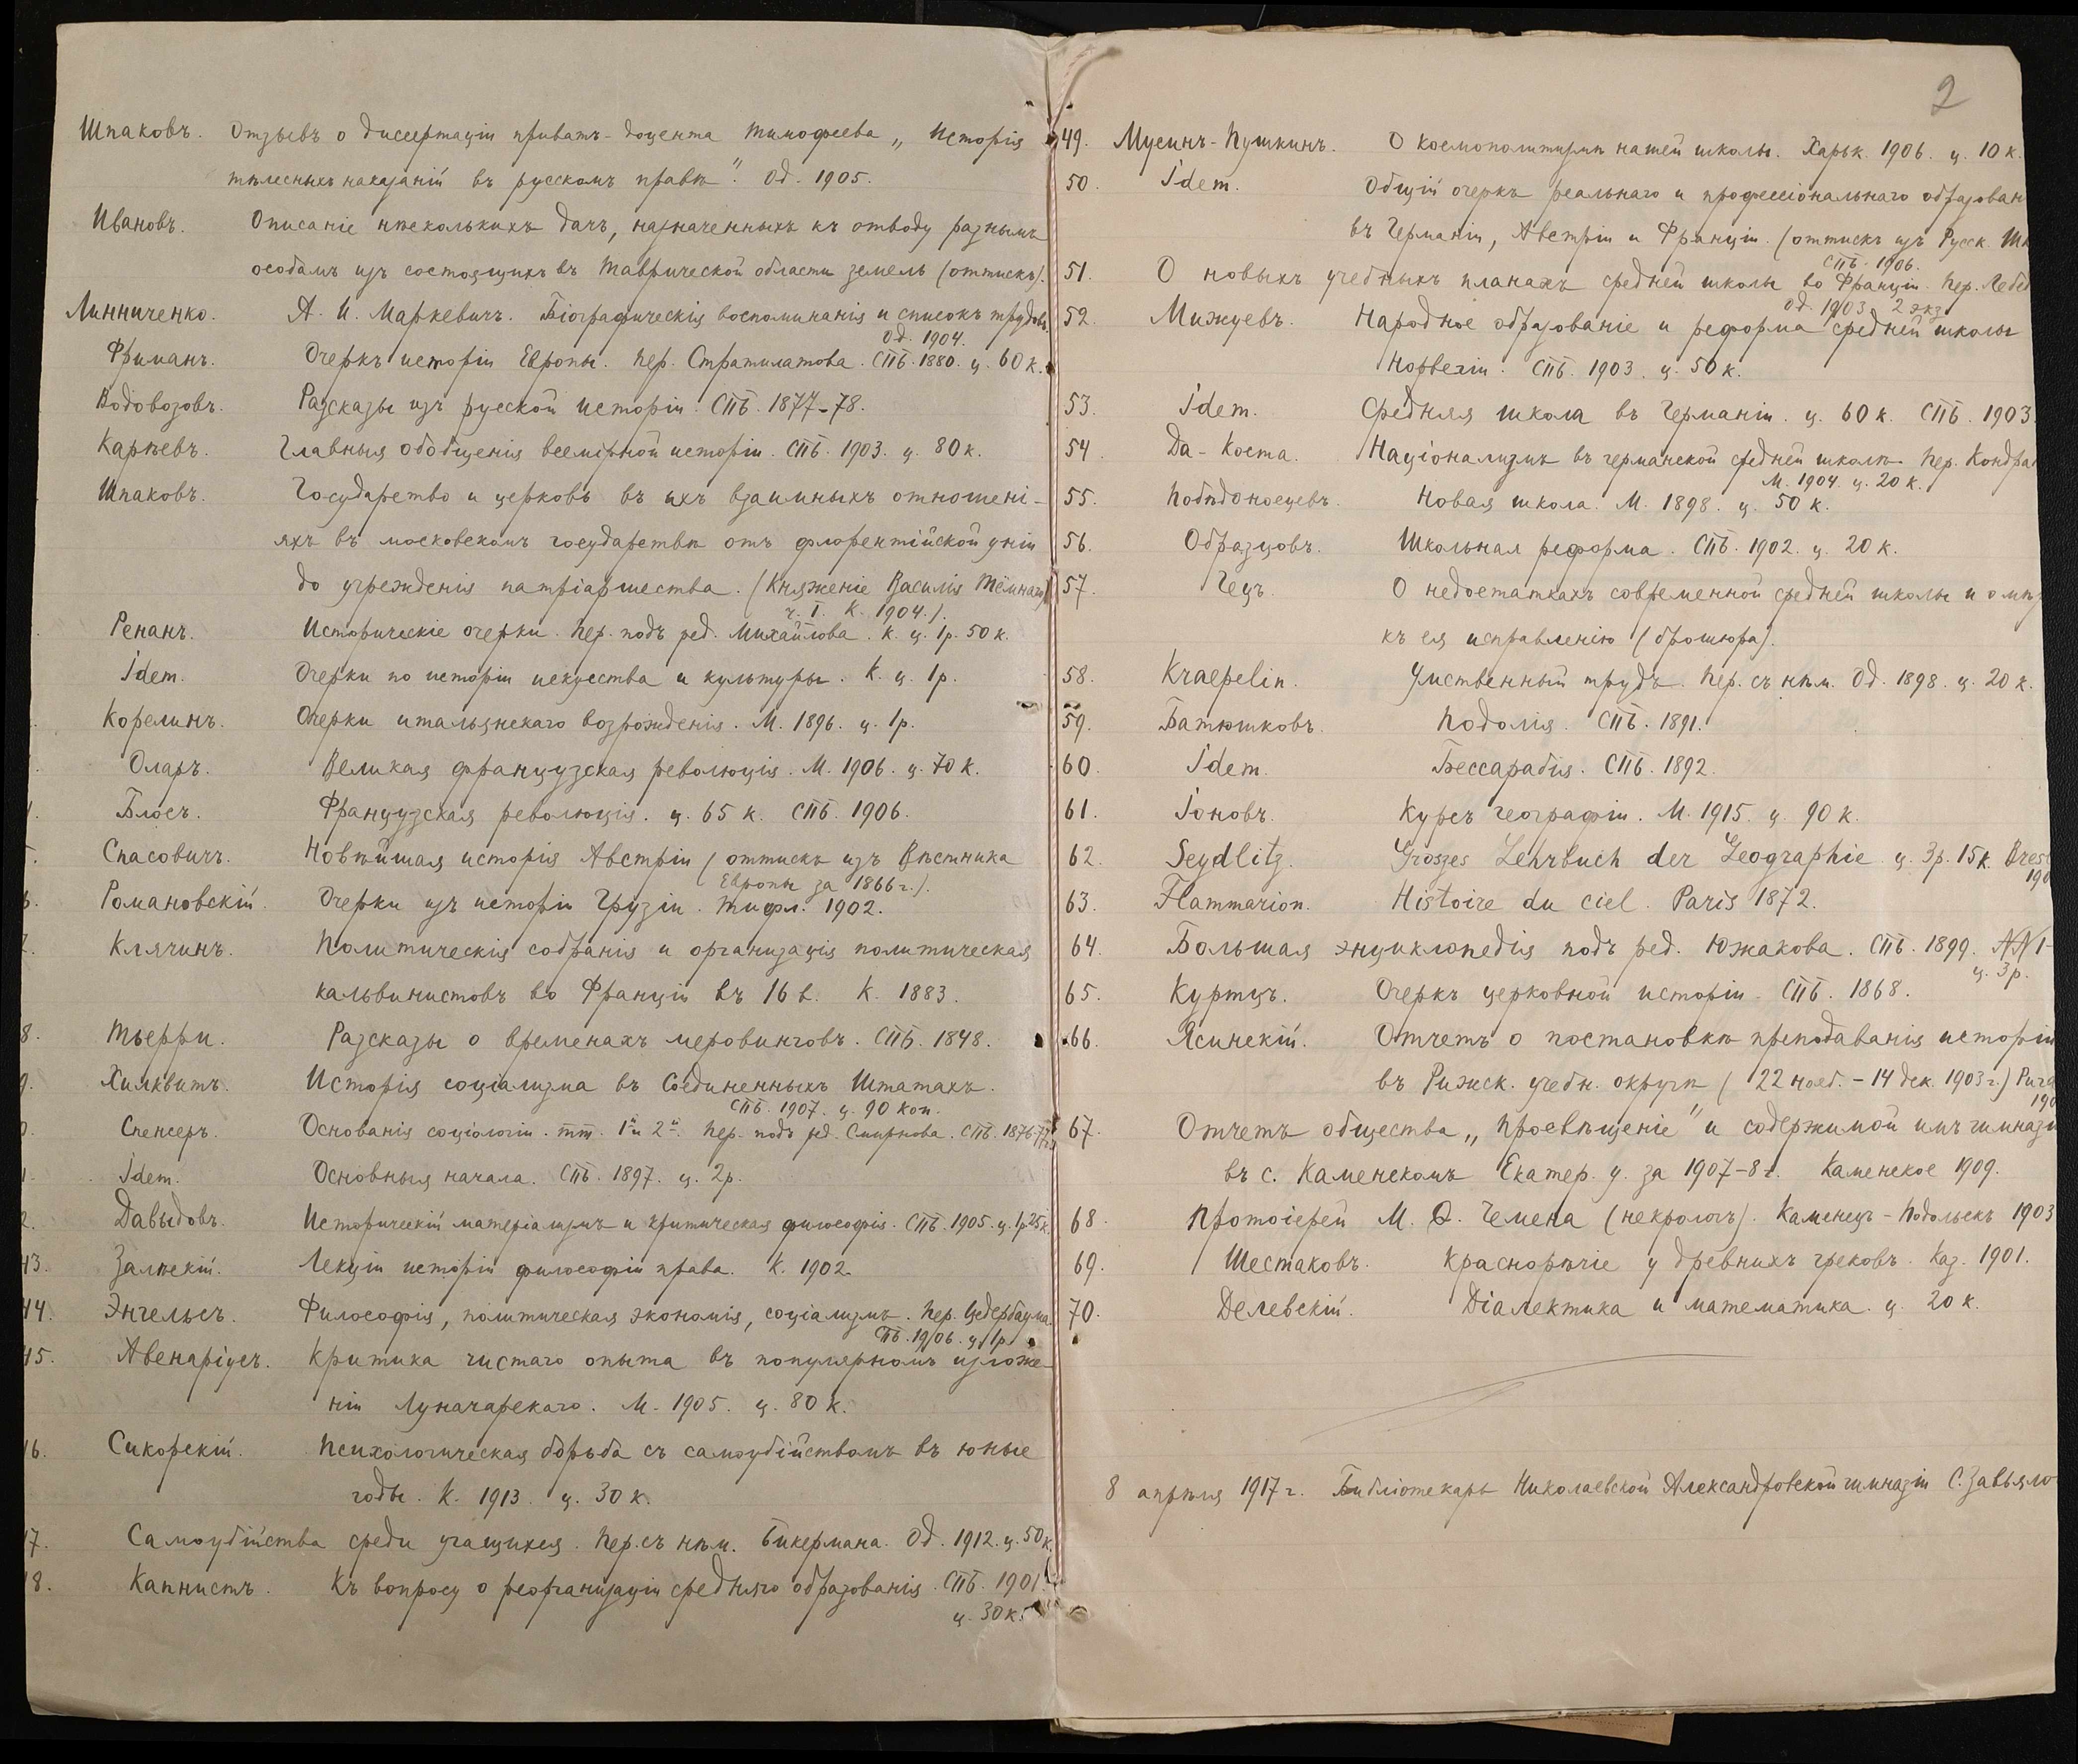 Шпаковъ. Отзывъ о диссертаціи приватъ-доцента Тимофеева „Исторія
тѣлесныхъ наказаній въ русскомъ правѣ“. Од. 1905.
Ивановъ. Описаніе нѣсколькихъ дачъ, назначенныхъ къ отводу разнымъ
особамъ изъ состоящихъ въ Таврической области земель (оттискъ).
Линниченко. А. И. Маркевичъ. Біографическія воспоминанія и списокъ трудовъ.
Од. 1904.
Фриманъ. Очеркъ исторіи Европы. Пер. Стратилатова. СПБ. 1880. ц. 60 к.
Водовозовъ. Разсказы изъ русской исторіи. СПБ. 1877-78.
Карѣевъ. Главныя обобщенія всемірной исторіи. СПБ. 1903. ц. 80 к.
Шпаковъ. Государство и церковь въ ихъ взаимныхъ отношені-
яхъ въ московскомъ государствѣ отъ флорентійской уніи
до учрежденія патріаршества. (Княженіе Василія Тёмнаго)
ч. I. К. 1904.).
Ренанъ. Историческіе очерки. Пер. подъ ред. Михайлова. К. ц. 1р. 50 к.
Idem. Очерки по исторіи искусства и культуры. К. ц. 1р.
Корелинъ. Очерки итальянскаго возрожденія. М. 1896. ц. 1р.
Оларъ. Великая французская революція. М. 1906. ц. 70 к.
Блосъ. Французская революція. ц. 65 к. СПБ. 1906.
Спасовичъ. Новѣйшая исторія Австріи (оттискъ изъ Вѣстника
Европы за 1866 г.).
6. Романовскій. Очерки изъ исторіи Грузіи. Тифл. 1902.
Клячинъ. Политическія собранія и организація политическая
кальвинистовъ во Франціи въ 16 в. К. 1883.
8. Тьерри. Разсказы о временахъ меровинговъ. СПБ. 1848.
9. Хилквитъ. Исторія соціализма въ Соединенныхъ Штатахъ.
СПБ. 1907. ц. 90 коп.
Спенсеръ. Основанія соціологіи. тт. 1й и 2й. Пер. подъ ред. Смирнова. СПБ. 1876-77
1. Idem. Основныя начала. СПБ. 1897. ц. 2р.
2. Давыдовъ. Историческій матеріализмъ и критическая философія. СПБ. 1905. ц. 1р 25к.
43. Залѣскій. Лекціи исторіи философіи права. К. 1902
44. Энгельсъ. Философія, политическая экономія, соціализмъ. Пер. Цедербаума.
СПБ. 1906. ц. 1р.
45. Авенаріусъ. Критика чистаго опыта въ популярномъ изложе-
ніи Луначарскаго. М. 1905. ц. 80 к.
46. Сикорскій. Психологическая борьба съ самоубійствомъ въ юные
годы. К. 1913. ц. 30 к.
7. Самоубійства среди учащихся. Пер. съ нѣм. Бикермана. Од. 1912. ц. 50 к.
8. Капнистъ. Къ вопросу о реорганизаціи средняго образованія. СПБ. 1901.
ц. 30 к.
2
49. Мусинъ-Пушкинъ. О космополитизмѣ нашей школы. Харьк. 1906. ц. 10 к.
50. Idem. Общій очеркъ реальнаго и профессіональнаго образован
въ Германіи, Австріи и Франціи. (оттискъ изъ Русск. Шк
СПБ. 1906.
51. О новыхъ учебныхъ планахъ средней школы во Франціи. Пер. Лебед
Од. 1903. 2 экз.
52. Мижуевъ. Народное образованіе и реформа средней школы
Норвегіи. СПБ. 1903. ц. 50 к.
53. Idem. Средняя школа въ Германіи. ц. 60 к. СПБ. 1903.
54. Да-Коста. Націонализмъ въ германской средней школѣ. Пер. Кондра
М. 1904. ц. 20 к.
55. Побѣдоносцевъ. Новая школа. М. 1898. ц. 50 к.
56. Образцовъ. Школьная реформа. СПБ. 1902. ц. 20 к.
57. Гецъ. О недостаткахъ современной средней школы и о мѣр
къ ея исправленію (брошюра).
58. Kraepelin. Умственный трудъ. Пер. съ нѣм. Од. 1898. ц. 20 к.
59. Батюшковъ. Подолія. СПБ. 1891.
60. Idem. Бессарабія. СПБ. 1892.
61. Іоновъ. Курсъ географіи. М. 1915. ц. 90 к.
62. Seydlitz. Groszes Lehrbuch der Geographie ц. 3р. 15 к. Bres
190
63. Flammarion. Histoire du ciel. Paris 1872.
64. Большая энциклопедія подъ ред. Южакова. СПБ. 1899. NN 1-
ц. 3 р.
65. Куртцъ. Очеркъ церковной исторіи. СПБ. 1868.
66. Ясинскій. Отчетъ о постановкѣ преподаванія исторіи
въ Рижск. учебн. округѣ (22 нояб. - 14 дек. 1903 г.) Рига
190
67. Отчетъ общества „Просвѣщеніе“ и содержимой имъ гимназі
въ с. Каменскомъ Екатер. у. за 1907-8 г. Каменское 1909.
68. Протоіерей М. Ѳ. Чемена (некрологъ). Каменецъ-Подольскъ 1903
69. Шестаковъ. Краснорѣчіе у древнихъ грековъ. Каз. 1901.
70. Делевскій. Діалектика и математика. ц. 20 к.
8 апрѣля 1917 г. Библіотекарь Николаевской Александровской гимназіи С. Завьяло